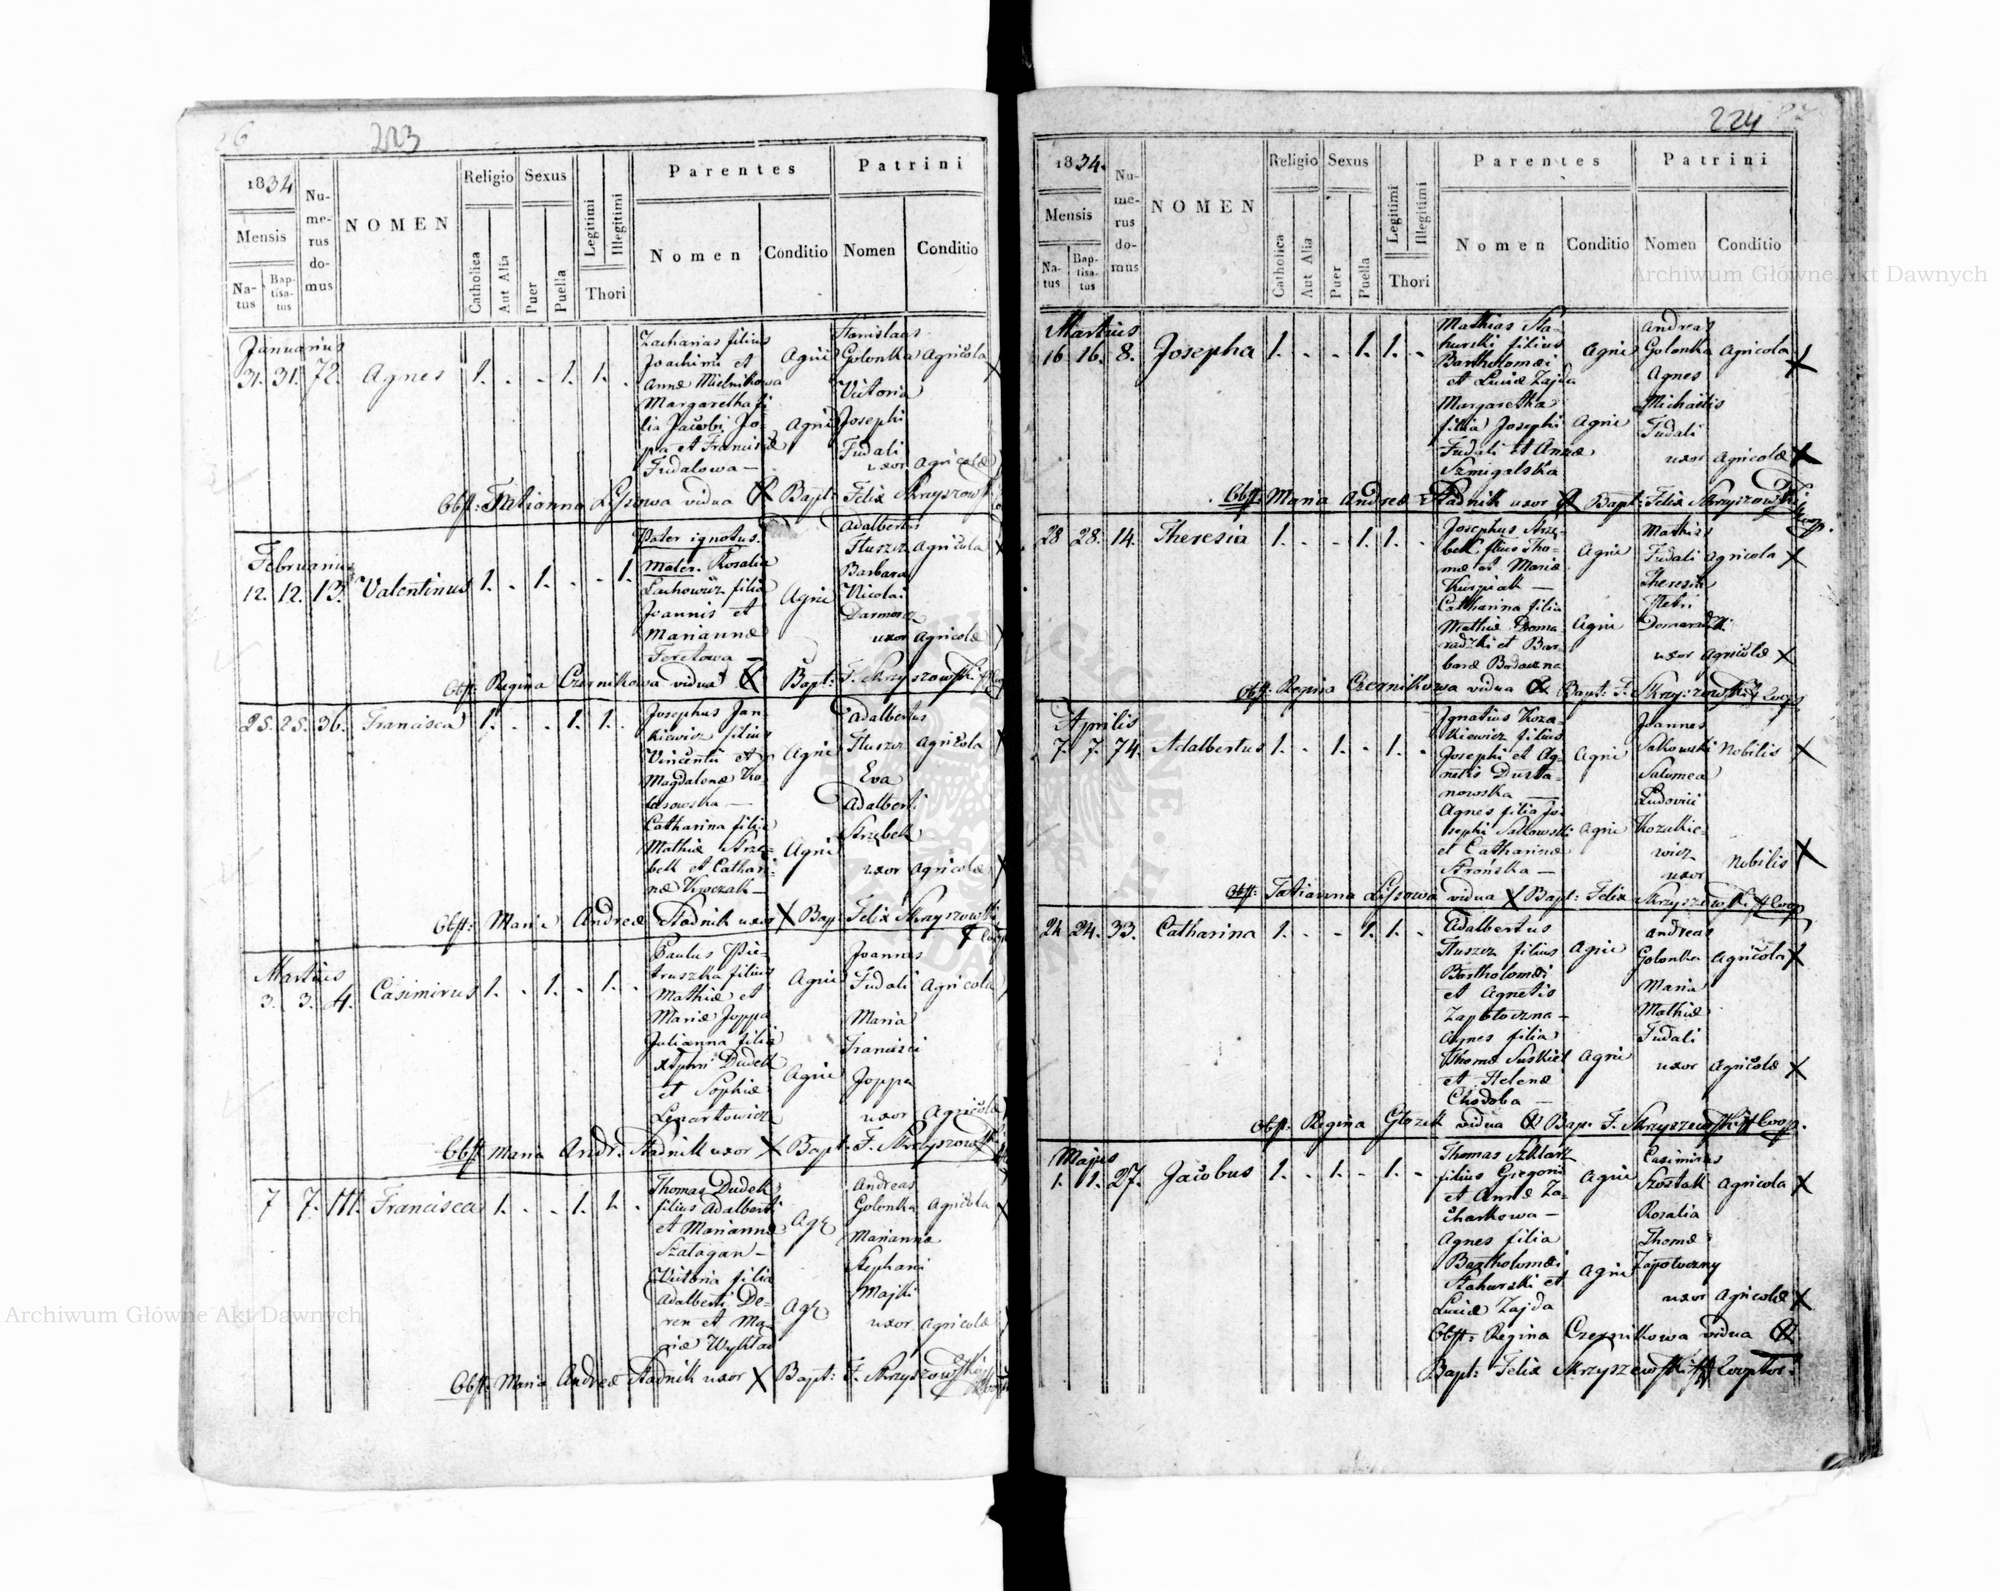 223
1834
Mensis
Na-
tus
Bap-
tisa-
tus
Nu-
me-
rus
do-
mus
NOMEN
Religio
Catholica
Aut Alia
Sexus
Puer
Puella
Legitimi
Illegitimi
Thori
Parentes
Nomen
Conditio
Patrini
Nomen
Conditio
Januarius
31. 31. 72. Agnes 1. . . 1. 1. .
Zacharias filius
Joachimi et
Annæ Mielnikowa
Agric
Margaretha fi
lia Jacobi Jo-
pa et Franciscæ
Fudalowa —
Agric
Stanislaus
Golonka Agricola
Victoria
Josephi
Fudali
uxor Agricolæ
Obst: Tatianna Lysowa vidua X Bapt: Felix Skrzyszowski
Februarius
12. 12. 13. Valentinus 1. . 1. . . 1.
Pater ignotus.
Mater. Rosalia
Lachowicz filia
Joannis et
Mariannæ
Feretowa —
Agric
Adalbertus
Tłuszcz Agricola
Barbara
Nicolai
Darmorz
uxor Agricolæ
Obst: Regina Czernikowa vidua X Bapt: F. Skrzyszowski
25. 25. 36. Francisca 1. . . 1. 1. .
Josephus Jan-
kiewicz filius
Vincentii et
Magdalenæ Ko-
larowska —
Agric
Catharina filia
Mathiæ Strze-
bek et Cathari-
næ Krwczak —
Agric
Adalbertus
Tłuszcz Agricola
Eva
Adalberti
Strzebek
uxor Agricolæ
Obst: Maria Andreæ Stadnik uxor X Bap: Felix Skrzyszowski
Martius
3. 3. 4. Casimirus 1. . 1. . 1. .
Paulus Pie-
truszka filius
Mathiæ et
Mariæ Joppa
Agric
Julianna filia
Xtphri Dudek
et Sophiæ
Lenartowicz
Agric
Joannes
Fudali Agricola
Maria
Francisci
Joppa
uxor Agricolæ
Obst: Maria Andr: Stadnik uxor X Bapt: F. Skrzyszowski
7 7. 111. Francisca 1. . . 1. 1. .
Thomas Dudek
filius Adalberti
et Mariannæ
Szatagan —
Agr
Victoria filia
Adalberti De-
ren et Ma-
riæ Wykład
Agr
Andreas
Golonka Agricola
Marianna
Stephani
Majki
uxor Agricolæ
Obst: Maria Andreæ Stadnik uxor X Bapt: F. Skrzyszowski
224
1834.
Mensis
Na-
tus
Bap-
tisa-
tus
Nu-
me-
rus
do-
mus
NOMEN
Religio
Catholica
Aut Alia
Sexus
Puer
Puella
Legitimi
Illegitimi
Thori
Parentes
Nomen
Conditio
Patrini
Nomen
Conditio
Martius
16 16. 8. Josepha 1. . . 1. 1. .
Mathias Sta-
hurski filius
Bartholomæi
et Luciæ Zajda
Agric
Margaretha
filia Josephi
Fudali et Annæ
Szmigalska
Agric
Andreas
Golonka Agricola
Agnes
Michaelis
Fudali
uxor Agricolæ
Obst: Maria Andreæ Stadnik uxor X Bapt: Felix Skrzyszowski
28 28. 14. Theresia 1. . . 1. 1. .
Josephus Strze-
bek filius Tho-
mæ et Mariæ
Kurpiak —
Agric
Catharina filia
Mathiæ Doma
radzki et Bar-
baræ Badaczna
Agric
Mathias
Fudali Agricola
Theresia
Petri
Domaradzki
uxor Agricolæ
Obst: Regina Czernikowa vidua X Bapt: F. Skrzyszowski Coop
Aprilis
7. 7. 74. Adalbertus 1. . 1. . 1. .
Ignatius Koza-
kiewicz filius
Josephi et Ag-
netis Dusta-
nowska —
Agric
Agnes filia Jo-
sephi Salkowski
et Catharinæ
Strońska —
Agric
Joannes
Salkowski Nobilis
Salomea
Ludovici
Kozakie-
wicz
uxor Nobilis
Obst: Tatianna Lysowa vidua X Bapt: Felix Skrzyszowski Coop
24 24. 33. Catharina 1. . . 1. 1. .
Adalbertus
Tłuszcz filius
Bartholomæi
et Agnetis
Zapotoczna —
Agric
Agnes filia
Thomæ Suskiel
et Helenæ
Chodoba —
Agric
Andreas
Golonka Agricola
Maria
Mathiæ
Fudali
uxor Agricolæ
Obst: Regina Głozek vidua X Bap: F. Skrzyszowski Coop.
Majus
1. 1. 27. Jacobus 1. . 1. . 1. .
Thomas Szklarz
filius Gregorii
et Annæ Za-
charkowa —
Agric
Agnes filia
Bartholomæi
Stahurski et
Luciæ Zajda
Agric
Casimirus
Szostak Agricola
Rosalia
Thomæ
Zapotoczny
uxor Agricolæ
Obst: Regina Czernikowa vidua X
Bapt: Felix Skrzyszewski Cooptor:
Archiwum Główne Akt Dawnych
Archiwum Główne Akt Dawnych